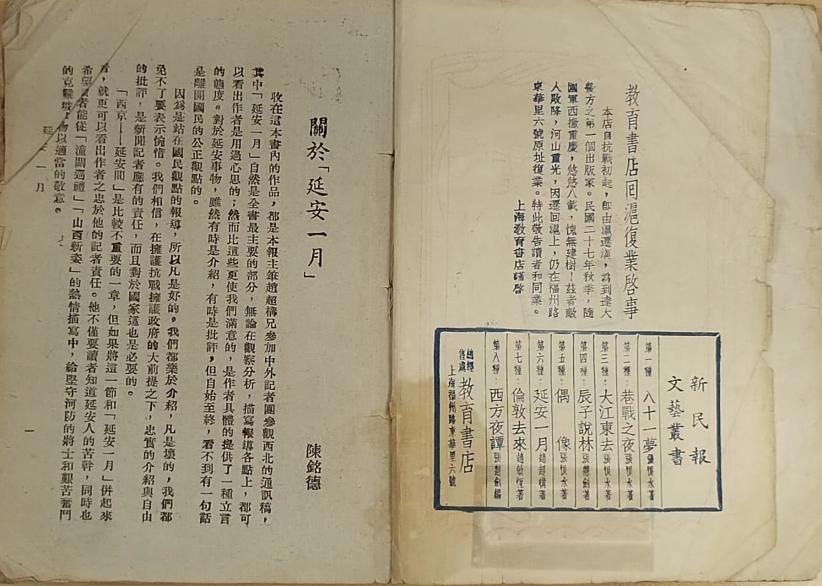 教育書店囘滬復業啓事
本店自抗戰初起，卽由滬遷漢，為到達大
後方之第一個出版家。民國二十七年秋季，隨
國軍西播重慶，悠悠八載，愧無建樹！茲者敵
人敗降，河山重光，因遷囘滬上，仍在福州路
東華里六號原址復業。特此敬告讀者和同業。
上海教育書店謹啓
新民報
文藝叢書
第一種：八十一夢 張恨水著
第二種：巷戰之夜 張恨水著
第三種：大江東去 張恨水著
第四種：辰子說林 張慧劍著
第五種：偶像 張恨水著
第六種：延安一月 趙超構著
第七種：倫敦去來 趙敏恆著
第八種：西方夜譚 張慧劍編
總經售處 教育書店
上海福州路東華里六號
關於「延安一月」
陳銘德
收在這本書內的作品，都是本報主筆趙超構兄參加中外記者團參觀西北的通訊稿，
其中「延安一月」自然是全書最主要的部分，無論在觀察分析，描寫報導各點上，都可
以看出作者是用過心思的；然而比這些更使我們滿意的，是作者具體的提供了一種立言
的態度。對於延安事物，雖然有時是介紹，有時是批評，但自始至終，看不到有一句話
是離開國民的公正觀點的。
因為是站在國民觀點的報導，所以凡是好的，我們都樂於介紹，凡是壞的，我們都
免不了要表示惋惜。我們相信，在擁護抗戰擁護政府的大前提之下，忠實的介紹與自由
的批評，是新聞記者應有的責任，而且對於國家這也是必要的。
「西京——延安間」是比較不重要的一章，但如果將這一節和「延安一月」倂起來
看，就更可以看出作者之忠於他的記者責任。他不僅要讀者知道延安人的苦幹，同時也
希望讀者能從「潼關巡禮」「山西新姿」的熱情描寫中，給堅守河防的將士和艱苦奮鬥
的克難坡人物以適當的敬意。
延安一月
一